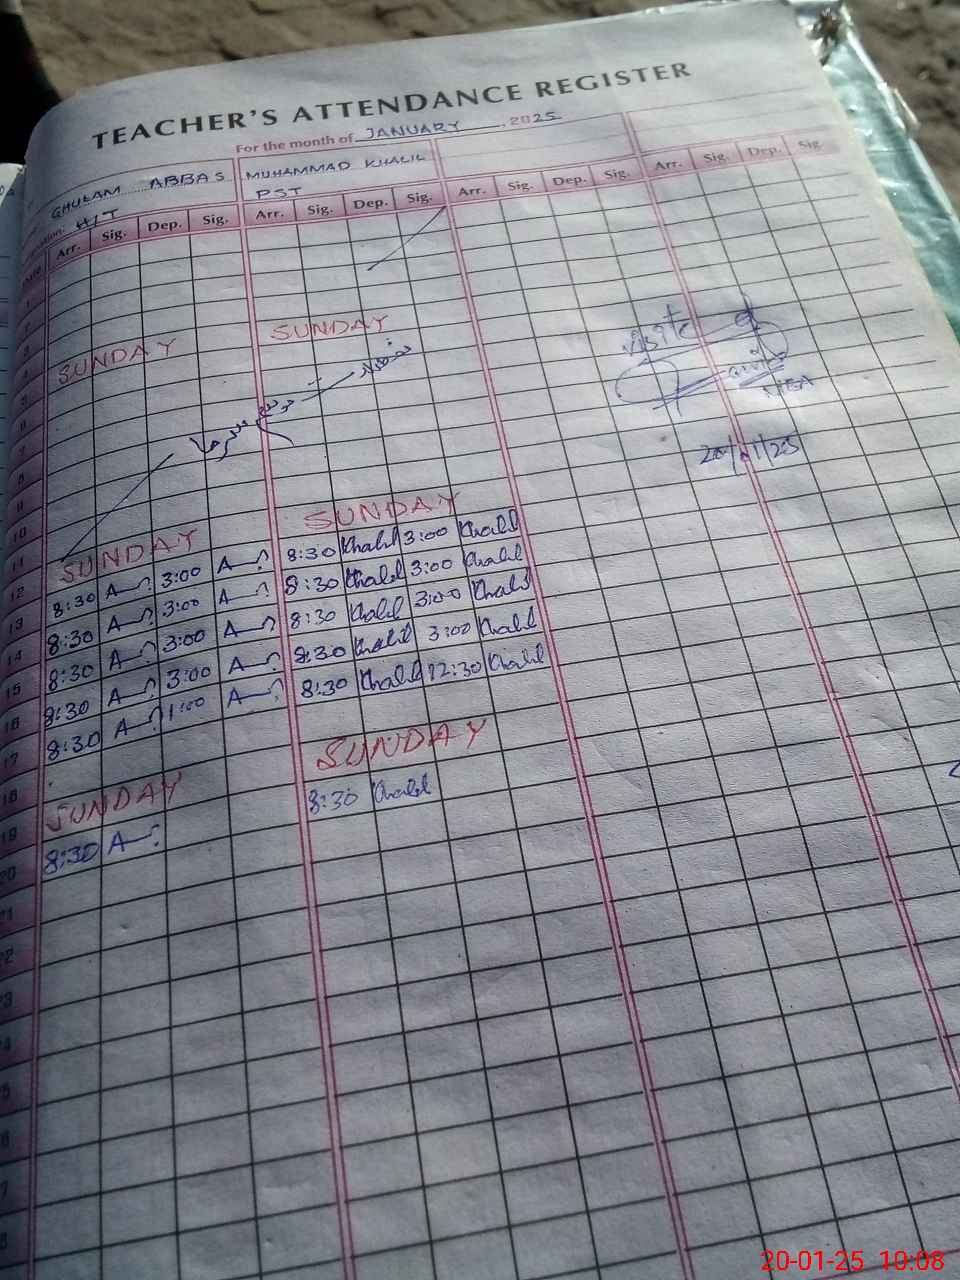 TEACHER'S ATTENDANCE REGISTER
For the month of JANUARY 2025
GHULAM ABBAS MUHAMMAD KHALIL
HT PST
Arr. Sig. Dep. Sig. Arr. Sig. Dep. Sig. Arr. Sig. Dep. Sig. Arr. Sig. Dep. Sig.
SUNDAY SUNDAY
visited
20/01/25
10
11 SUNDAY SUNDAY
12 8:30 A 3:00 A 8:30 Khalil 3:00 Khalil
13 8:30 A 3:00 A 8:30 Khalil 3:00 Khalil
14 8:30 A 3:00 A 8:30 Khalil 3:00 Khalil
15 8:30 A 3:00 A 8:30 Khalil 3:00 Khalil
16 8:30 A 1:00 A 8:30 Khalil 12:30 Khalil
17
18 SUNDAY SUNDAY
19 8:30 A 8:30 Khalil
20
21
22
20-01-25 10:08